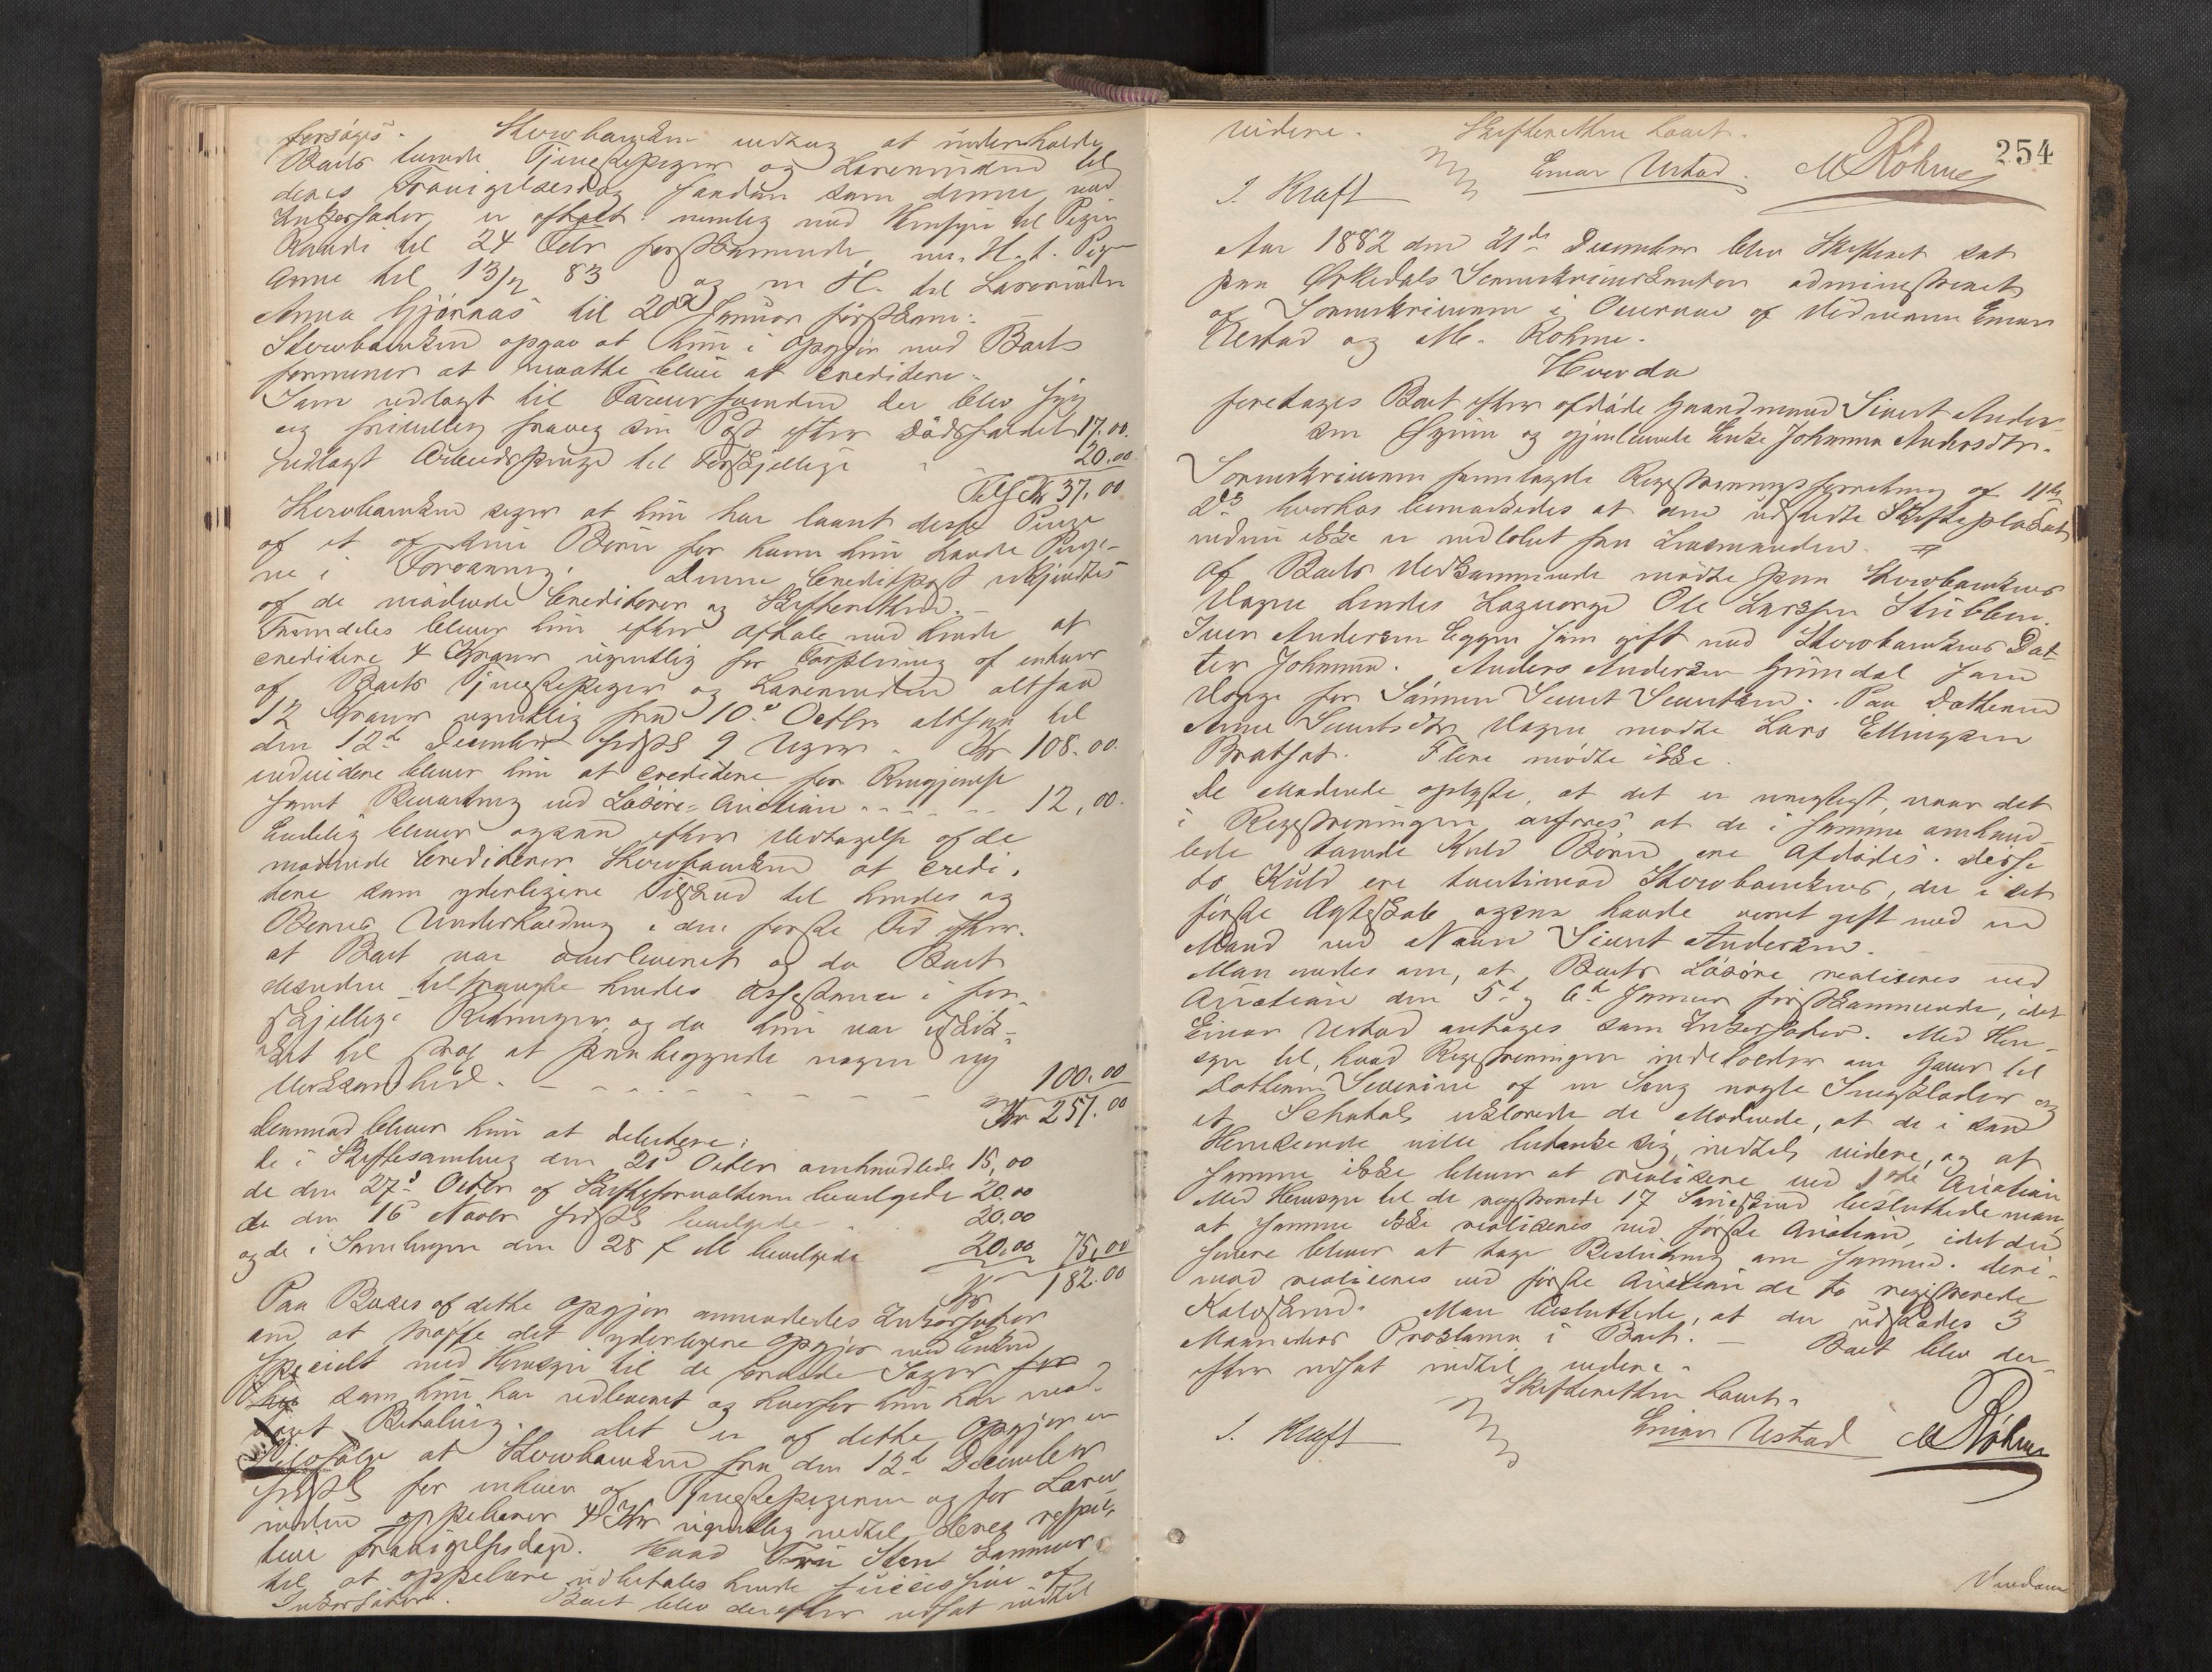 forsøges. Sterbboenken vedtog at underholde
Boets tvende Tjenestepiger og Lærerinden til
deres Fravigelsesdag saadan som denne med
Inkassator er aftalt nemlig med Hensyn til Pigen
Randi til 24 Febr førstkommende, m. H. t. Pigen
Anna til 13/2 83 og m H. til Lærerinden
Anna Gjønnæs til 20de Januar førstkom:
Sterbboenken opgav at hun i Opgjør med Boets
formener at maatte blive at creditere.
Som udlagt til
og frivillig sin Post efter Dødsfaldet 17.00.
Udlagt Arbeidspenge til Forskjellige 20.00.
Tils Kr 37.00
Sterbboenken siger at hun har laant disse Penge
af et af sine Børn for hvem hun havde Penge-
ne i Forvaring. Denne Creditpost udkjendtes
af de mødende Creditorer og Skifteretten.
Fremdeles bliver hun efter Aftale med hende at
creditere 4 Kroner ugentlig for Bespisning af enhver
af Boets Tjenestepiger og Lærerinden altsaa
12 Kroner ugentlig fra 10de Octbr altsaa til
den 12te December sidstl 9 Uger Kr 108.00.
endvidere bliver hun at creditere for Rengjørelse
samt Bevartning ved Løsøre-Auction 12,00.
Endelig bliver ogsaa efter Vedtagelse af de
mødende Creditorer Sterbboenken at credi-
tere som yderligere Tilskud til hendes og
Børnes Underholdning i den første Tid efter
at Boet var overleveret og da Boet
desuden tiltrængte hendes Assistance i for-
skjellige Retninger, og da hun var uskik-
ket til strax at paabegynde nogen ny
Virksomhed. 100.00
Kr 257.00
Derimod bliver hun at debitere:
de i Skiftesamling den 21de Octbr omhandlede 15,00
de den 27de Octbr af Skifteforvalteren bevilgede 20.00
de den 16 Novbr sidstl bevilgede 20.00
og de i Samlingen den 28 f M bevilgede 20.00 75,00
Kr 182.00
Paa Basis af dette Opgjør anmodedes Inkassator
om at træffe det yderligere Opgjør med Enken
specielt med Hensyn til de Sager for
som hun har udleveret og hvorfor hun har mod-
taget Betaling. Det er af dette Opgjør en
Selvfølge at Sterbboenken fra den 12te December
sidstl for enhver af Tjenestepigerne og for Lærer-
inden oppebærer 4 Kr ugentlig indtil deres respec-
tive Fravigelsesdag. Hvad Fru Sten kommer
til at oppebære udbetales hende successive af
Inkassator. Boet blev derefter udsat indtil
videre. Skifteretten hævet.
254
J. Kraft Einar Ustad M Røhme
Aar 1882 den 21de December blev Skifteret sat
paa Ørkedals Sorenskriverkontor administreret
af Sorenskriveren i Overvær af Vidnerne Einar
Ustad og M. Rohme.
Hvorda
foretages Boet efter afdøde Gaardmand Sivert Ander-
sen og gjenlevende Enke Johanna Andersdtr.
Sorenskriveren fremlagde Registreringsforretning af 11te
ds hvorhos bemærkedes at den udstedte Skifteplakat
endnu ikke er indløbet fra Lensmanden.
Af Boets Vedkommende mødte paa Sterbboenkens
Vegne hendes Laugværge Ole Larsen Stubben.
Iver Andersen Eggen som gift med Sterbboenkens Dat-
ter Johanna. Anders Andersen Grindal som
Værge for Sønnen Sivert Sivertsen. Paa Datteren
Anne Sivertsdtr Vegne mødte Lars Ellingsen
Bratset. Flere mødte ikke.
De Mødende oplyste, at det er urigtigt, naar det
i Registreringen anføres at de i samme omhand-
lede tvende Kuld Børn ere Afdødes. Disse
to Kuld ere tvertimod Sterbboenkens, der i det
første Ægteskab ogsaa havde været gift med en
Mand ved Navn Sivert Andersen.
Man enedes om, at Boets Løsøre realiseres ved
Auction den 5te og 6te Januar førstkommende, idet
Einar Ustad antages som Inkassator. Med Hen-
syn til, hvad Registreringen indeholder om Gaver til
Datteren Severine af en Seng nogle Sengklæder og
et Schatol erklærede de Mødende, at de i saa
Henseende ville betænke sig indtil videre, og at
samme ikke bliver at realisere ved 1ste Auction
Med Hensyn til de registrerede 17 besluttede man,
at samme ikke realiseres ved første Auction, idet der
senere bliver at tage Beslutning om samme. Deri-
mod realiseres ved første Auction de to registrerede
Kalveskind. Man besluttede, at der udstædes 3
Maaneders Proclama i Boet. Boet blev der-
efter udsat indtil videre.
Skifteretten hævet.
J. Kraft Einar Ustad M Røhme